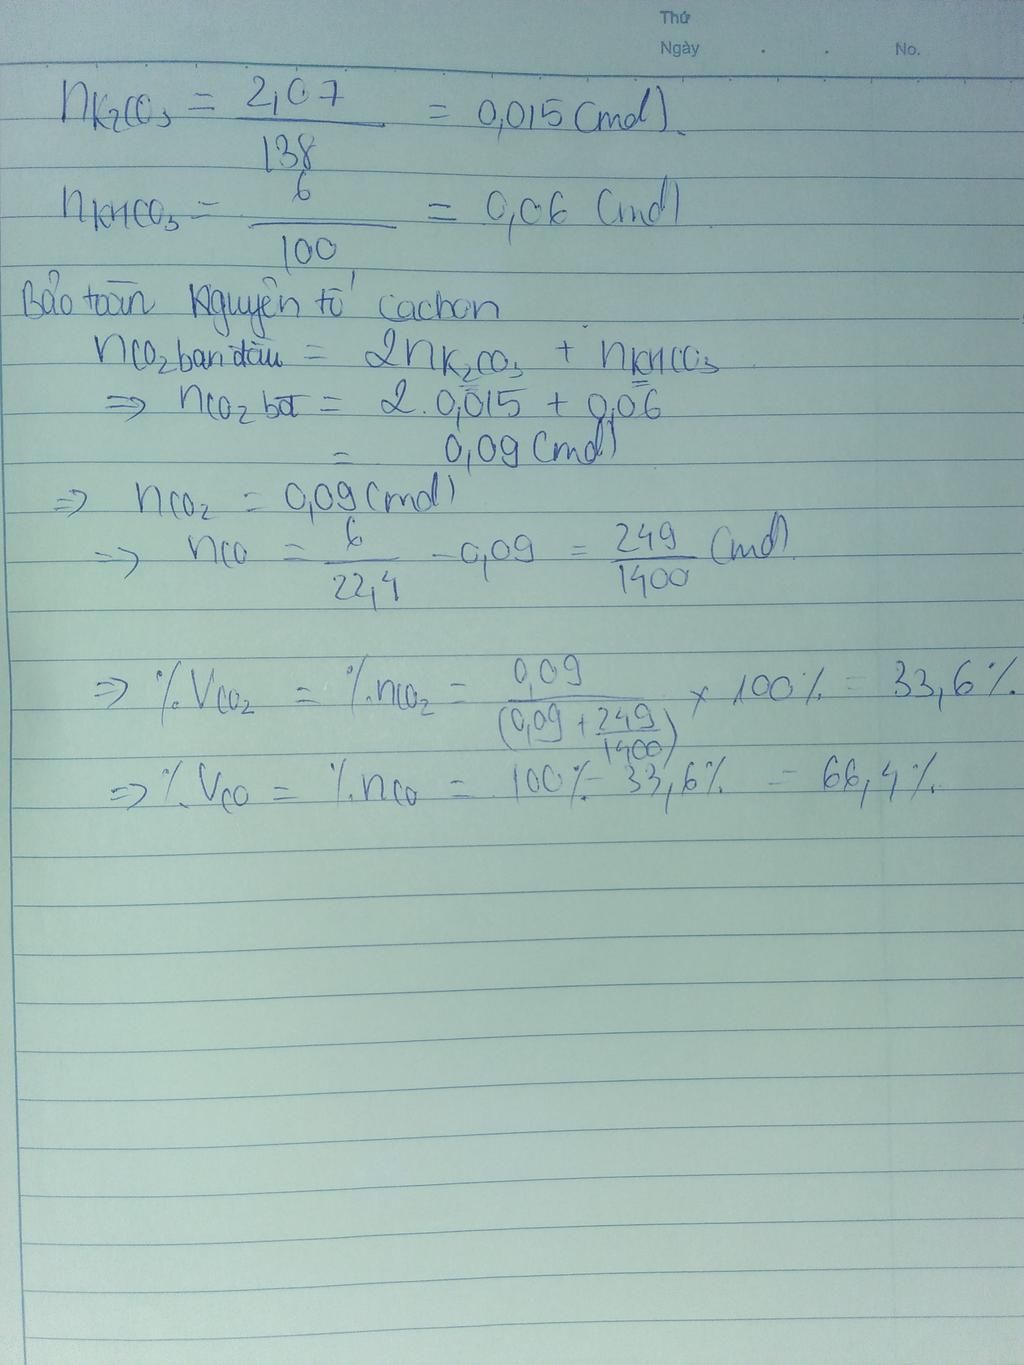 Thứ
Ngày . . No.
nK₂CO₃ = 2,07/138 = 0,015 (mol).
nKHCO₃ = 6/100 = 0,06 (mol)
Bảo toàn nguyên tố cacbon
nCO₂ ban đầu = 2nK₂CO₃ + nKHCO₃
=> nCO₂ bđ = 2.0,015 + 0,06
= 0,09 (mol)
=> nCO₂ = 0,09 (mol)
=> nCO = 6/22,4 - 0,09 = 249/1400 (mol).
=> %VCO₂ = %nCO₂ = 0,09/(0,09 + 249/1400) x 100% = 33,6%
=> %VCO = %nCO = 100% - 33,6% = 66,4%.